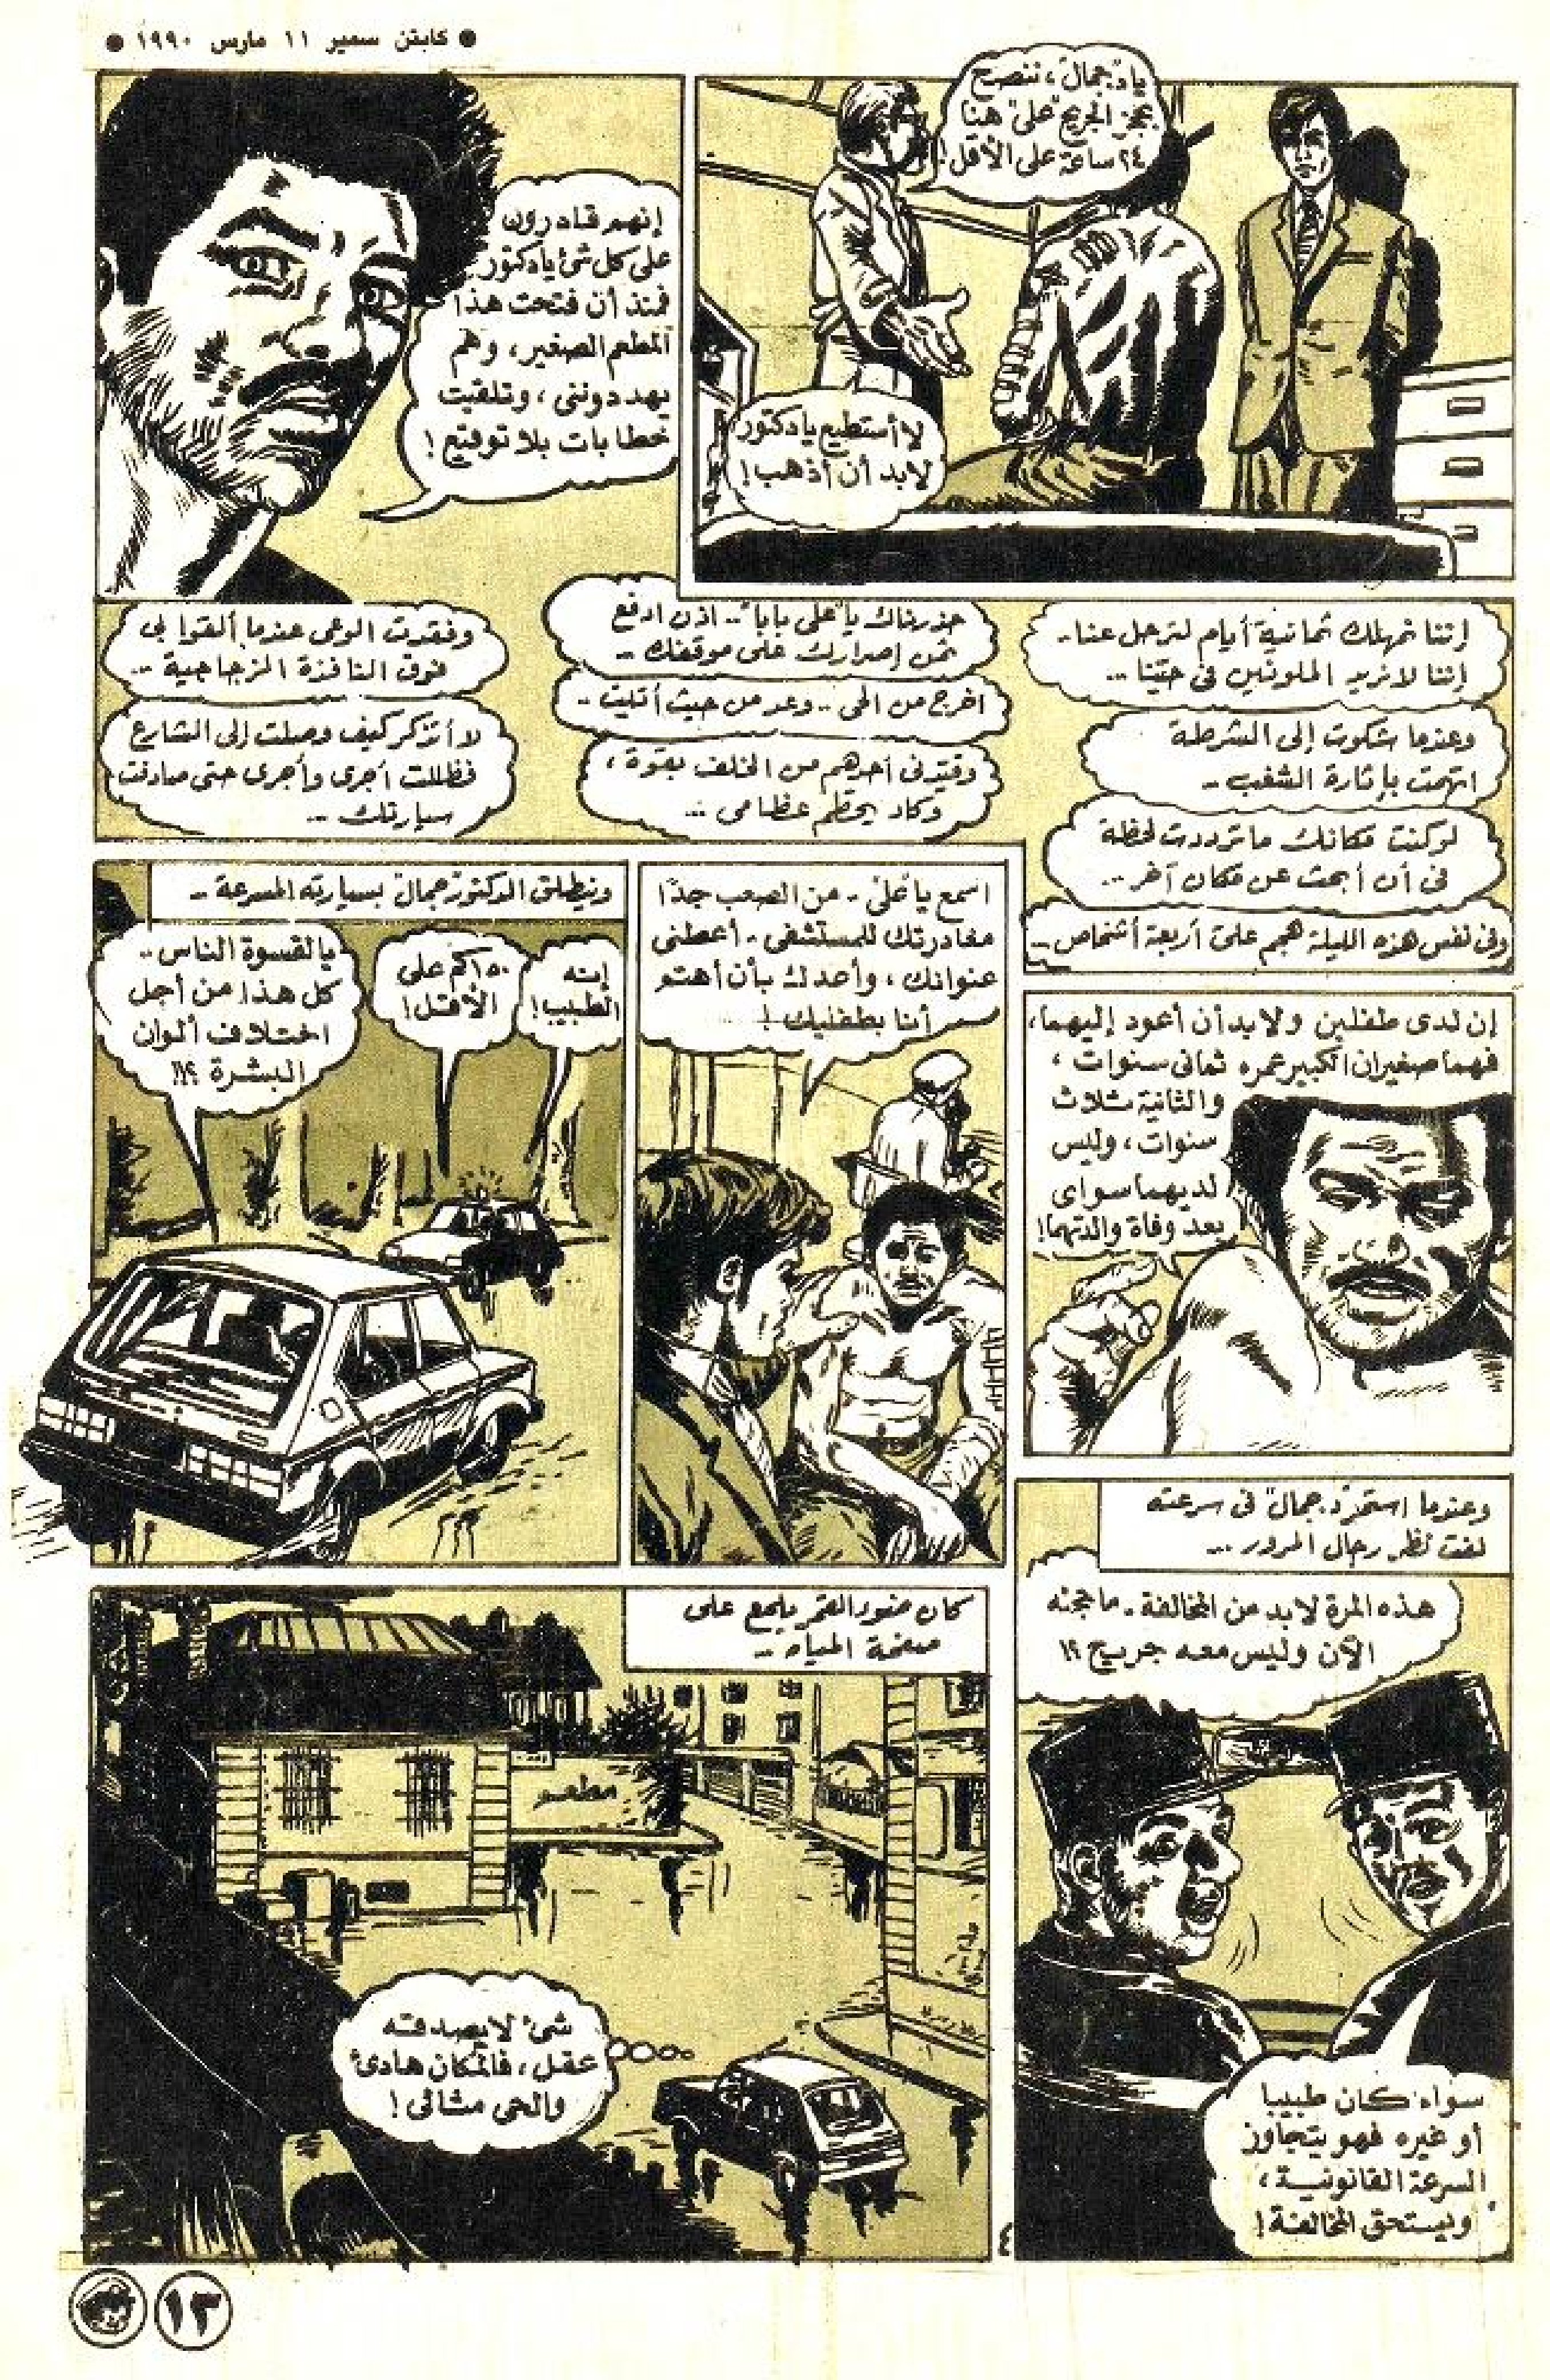 ● كابتن سمير ١١ مارس ١٩٩٠ ●
يا د. جمال ، ننصح
بحجز الجريح "على" هنا
٢٤ ساعة على الأقل !
لا أستطيع يا دكتور
لابد أن أذهب !
إنهم قادرون
على كل شئ يا دكتور
فمنذ أن فتحت هذا
المطعم الصغير ، وهم
يهددوننى ، وتلقيت
خطابات بلا توقيع !
إننا نمهلك ثمانية أيام لترحل عنا ..
إننا لا نريد الملونين فى حيّنا ...
وعندما شكوت إلى الشرطة
اتهمت بإثارة الشغب ..
لو كنت مكانك ما ترددت لحظة
فى أن أبحث عن مكان آخر ...
وفى نفس هذه الليلة هجم علىّ أربعة أشخاص ..
حذرناك يا "على بابا" .. اذن ادفع
ثمن إصرارك على موقفك ..
اخرج من الحى .. وعد من حيث أتيت ..
وقيّدنى أحدهم من الخلف بقوة ،
وكاد يحطم عظامى ...
وفقدت الوعى عندما ألقوا بى
فوق النافذة الزجاجية ..
لا أتذكر كيف وصلت إلى الشارع
فظللت أجرى وأجرى حتى صادفت
سيارتك ...
إن لدى طفلين ولابد أن أعود إليهما ،
فهما صغيران الكبير عمره ثمانى سنوات ،
والثانية ثلاث
سنوات ، وليس
لديهما سواى
بعد وفاة والدتهما !
اسمع يا على .. من الصعب جدًا
مغادرتك للمستشفى .. أعطنى
عنوانك ، وأعدك بأن أهتم
أنا بطفليك !
وينطلق الدكتور "جمال" بسيارته المسرعة ..
إنه
الطبيب !
١٥٠ كم على
الأقل !
يالقسوة الناس ..
كل هذا من أجل
اختلاف ألوان
البشرة ؟!!
وعندما استمر "د. جمال" فى سرعته
لفت نظر رجال المرور ...
هذه المرة لابد من المخالفة .. ما حجته
الآن وليس معه جريح ؟!
سواء كان طبيبا
أو غيره فهو يتجاوز
السرعة القانونية ،
ويستحق المخالفة !
كان ضوء القمر يلمع على
صفحة المياه ..
مطعم
شئ لا يصدقه
عقل ، فالمكان هادئ
والحى مثالى !
٤
١٣